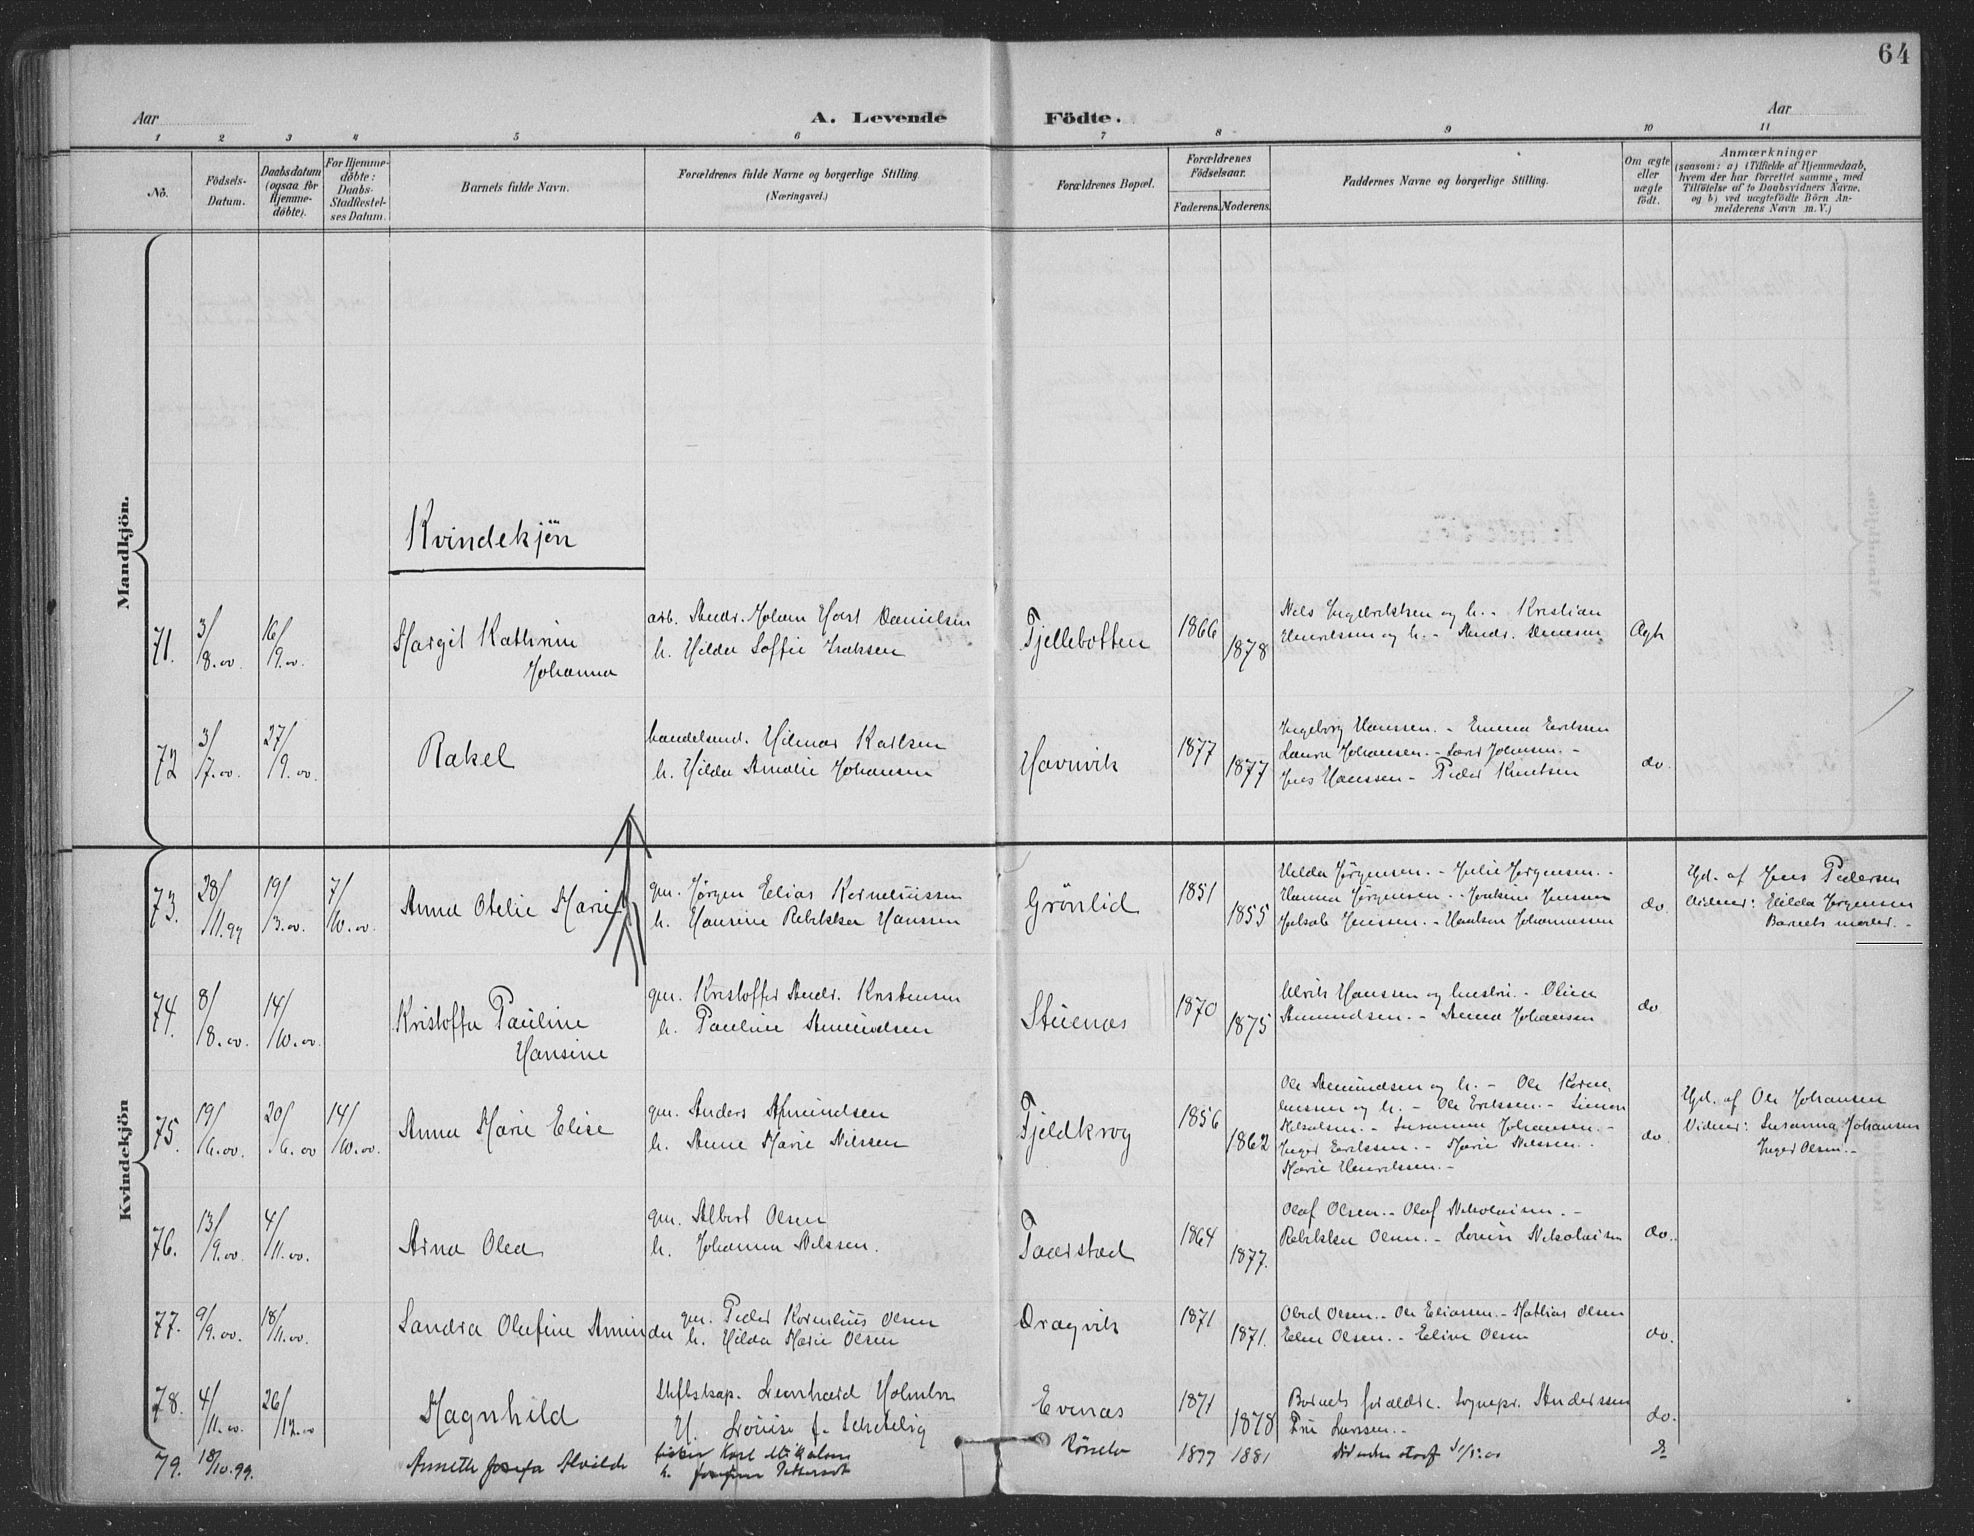 64
Aar
A. Levende
Födte.
Aar
1 2 3 4 5 6 7 8 9 10 11
No.
Födsels-Datum.
Daabsdatum (ogsaa for Hjemmedöbte).
For Hjemmedöbte: Daabs-Stadfæstelses Datum.
Barnets fulde Navn.
Forældrenes fulde Navne og borgerlige Stilling
(Næringsvei.)
Forældrenes Bopæl.
Forældrenes Födselsaar.
Faderens. Moderens.
Faddernes Navne og borgerlige Stilling.
Om ægte eller uægte födt.
Anmærkninger
(saasom: a) i Tilfælde af Hjemmedaab,
hvem der har forrettet samme, med
Tilföielse af to Daabsvidners Navne,
og b) ved uægtefödte Börn An-
melderens Navn m. V.)
Mandkjön.
Kvindekjön
Kvindekjön
71. 3/8.00. 16/9.00. Margit Kathrine Johanna
arb. Andr. Johan Horst Danielsen
h. Hilda Soffie Isaksen
Fjellebotten 1866 1878
Nils Ingebriktsen og h. - Kristian
Henriksen og h. - Andr.
Ægte
72 3/7.00. 27/9.00. Rakel
handelsmd. Hilmar Karlsen
h. Hilda Amalie Johansen
Havnvik 1877 1877
Ingeborg Hanssen. - Emma Eriksen
Laura Johansen. - Johnsen. -
Jens Hanssen - Peder Knutsen
do.
73. 28/11.99 19/3.00. 7/10.00. Anna Otelie Marie
gm. Jørgen Elias Korneliussen
h. Hansine Rebekka Hanssen
Grönlid 1851 1855
Hilda Jørgensen. - Julie Jørgensen. -
Hanna Jørgensen. - Joakine Jenssen
Jenssen. - Johannessen
do.
Hjd. af Jens Pedersen
Vidner: Hilda Jørgensen
Barnets moder. -
74. 8/8.00. 14/10.00. Kristoffa Pauline Hansine
gm. Kristoffer Andr. Kristensen
h. Pauline Amundsen
Stuenæs 1870 1875
Ulrik Hanssen og hustru. - Oline
Amundsen. - Anna Johansen
do
75. 19/6.00. 20/6.00 14/10.00. Anna Marie Elise
gm. Anders Amundsen
h. Anne Marie Nilssen
Fjeldkrog 1856 1862
Ole Amundsen og h. - Ole Korne-
liussen og h. - Ole Eriksen - Simon
- Susanna Johansen. -
Inger Eriksen. - Marie Nilssen. -
Marie Henriksen. -
do.
Hjd. af Ole Johansen
Vidner: Susanna Johansen
Inger Olsen. -
76. 13/9.00 4/11.00. Arna Olea
gm. Albert Olsen
h. Johanna Nilssen.
Taarstad 1864 1877.
Olaf Olsen. - Olaf Nikolaisen. -
Rebekka Olsen. - Louise Nikolaisen
do.
77. 9/9.00. 18/11.00. Sandra Olufine Aminda
gm. Peder Kornelius Olsen
h. Hilda Marie Olsen
Dragvik 1871 1871.
Obed Olsen. - Ole Eliassen. - Mathias Olsen
Elen Olsen. - Eline Olsen
do.
78. 4/11.00. 26/12.00 Magnhild
Stiftskap. Leonhard Holmboe
H. Louise f. Schetelig
Evenæs 1871 1878
Barnets forældre. Sognepr. Anderssen
Frk Larssen. -
do.
79. 18/10.99. Anneth Josefa Alvilde
fisker Karl Mikalsen
h. Josefine Pettersdt
1877 1881